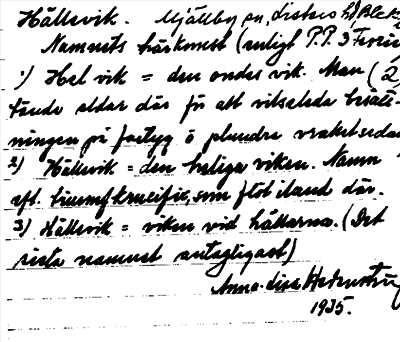 Hällevik. Mjällby sn, Listers hd, Blek
Namnets härkomst (enligt P.P. 3
1) Hel vik = den ondes vik. Man (2
tände eldar där för att vilseleda besätt-
ningen på fartyg o plundra vraket sedan
2) Hällevik = den heliga viken. Namn
eft. triumfkrucifix, som flöt iland där.
3) Hällevik = viken vid hällarna. (Det
sista namnet antagligast)
Anna-Lisa
1935.